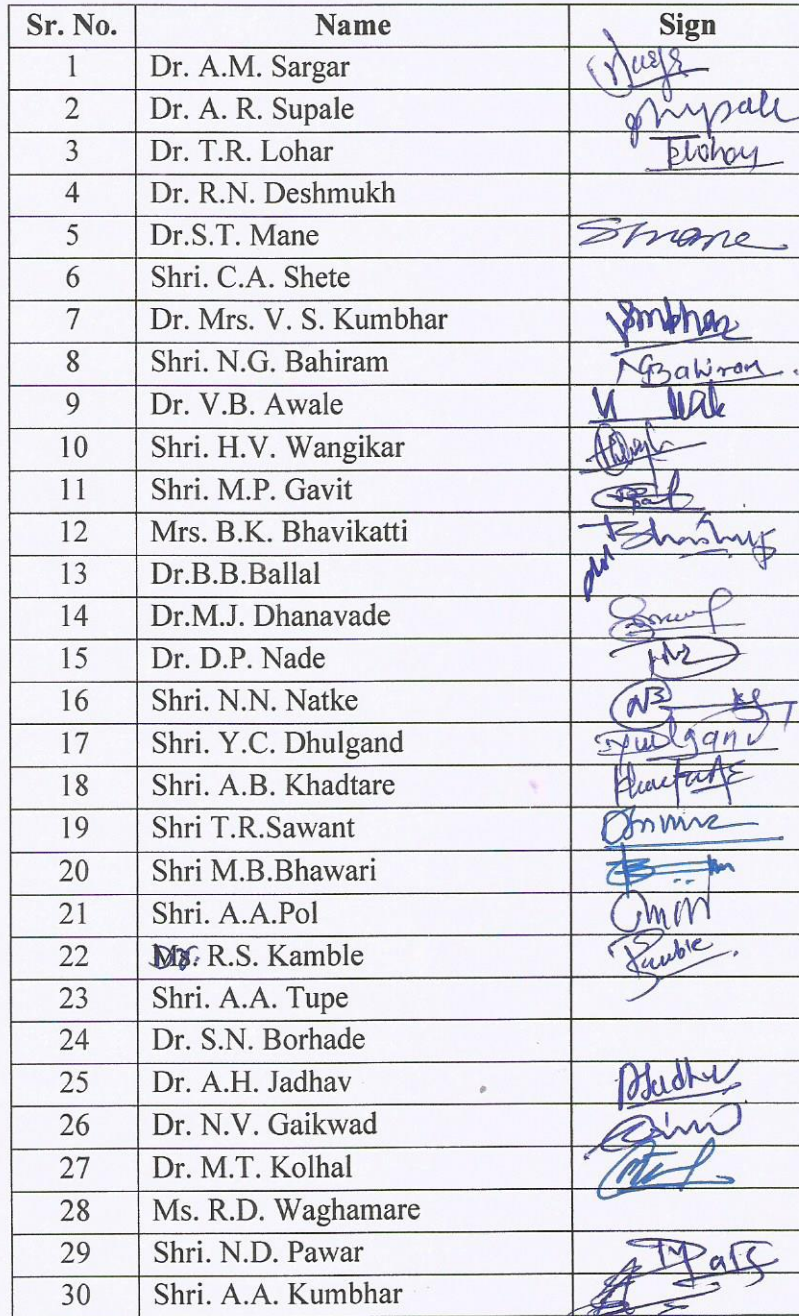 Sr. No. Name Sign
1 Dr. A.M. Sargar
2 Dr. A. R. Supale
3 Dr. T.R. Lohar TRLohar
4 Dr. R.N. Deshmukh
5 Dr.S.T. Mane Smane
6 Shri. C.A. Shete
7 Dr. Mrs. V. S. Kumbhar
8 Shri. N.G. Bahiram NGBahiram.
9 Dr. V.B. Awale
10 Shri. H.V. Wangikar
11 Shri. M.P. Gavit
12 Mrs. B.K. Bhavikatti
13 Dr.B.B.Ballal
14 Dr.M.J. Dhanavade
15 Dr. D.P. Nade
16 Shri. N.N. Natke
17 Shri. Y.C. Dhulgand
18 Shri. A.B. Khadtare
19 Shri T.R.Sawant
20 Shri M.B.Bhawari
21 Shri. A.A.Pol
22 Dr. R.S. Kamble
23 Shri. A.A. Tupe
24 Dr. S.N. Borhade
25 Dr. A.H. Jadhav
26 Dr. N.V. Gaikwad
27 Dr. M.T. Kolhal
28 Ms. R.D. Waghamare
29 Shri. N.D. Pawar
30 Shri. A.A. Kumbhar